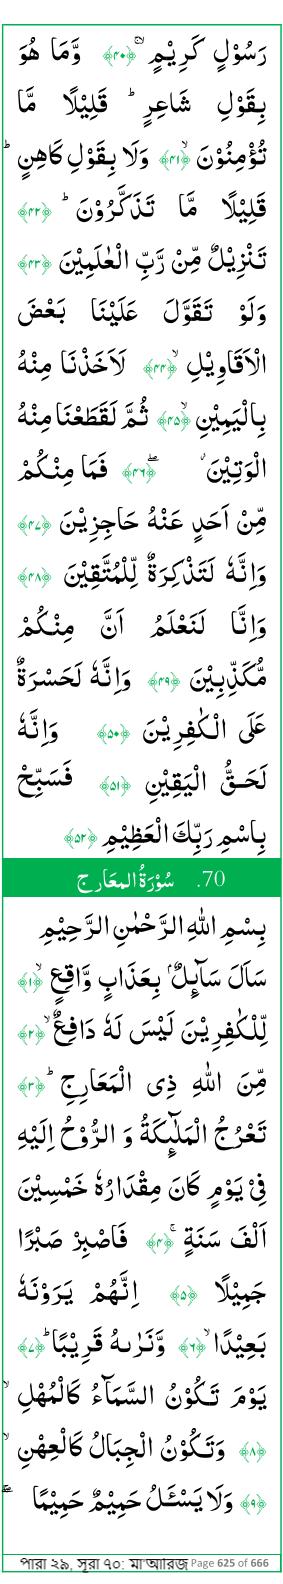 رَسُوْلٍ كَرِيْمٍ ۙ ﴿۴۰﴾ وَّمَا هُوَ
بِقَوْلِ شَاعِرٍ ؕ قَلِيْلًا مَّا
تُؤْمِنُوْنَ ۙ ﴿۴۱﴾ وَلَا بِقَوْلِ كَاهِنٍ ؕ
قَلِيْلًا مَّا تَذَكَّرُوْنَ ؕ ﴿۴۲﴾
تَنْزِيْلٌ مِّنْ رَّبِّ الْعٰلَمِيْنَ ﴿۴۳﴾
وَلَوْ تَقَوَّلَ عَلَيْنَا بَعْضَ
الْاَقَاوِيْلِ ۙ ﴿۴۴﴾ لَاَخَذْنَا مِنْهُ
بِالْيَمِيْنِ ۙ ﴿۴۵﴾ ثُمَّ لَقَطَعْنَا مِنْهُ
الْوَتِيْنَ ۖ ﴿۴۶﴾ فَمَا مِنْكُمْ
مِّنْ اَحَدٍ عَنْهُ حَاجِزِيْنَ ﴿۴۷﴾
وَاِنَّهٗ لَتَذْكِرَةٌ لِّلْمُتَّقِيْنَ ﴿۴۸﴾
وَاِنَّا لَنَعْلَمُ اَنَّ مِنْكُمْ
مُّكَذِّبِيْنَ ﴿۴۹﴾ وَاِنَّهٗ لَحَسْرَةٌ
عَلَى الْكٰفِرِيْنَ ﴿۵۰﴾ وَاِنَّهٗ
لَحَقُّ الْيَقِيْنِ ﴿۵۱﴾ فَسَبِّحْ
بِاسْمِ رَبِّكَ الْعَظِيْمِ ﴿۵۲﴾
70. سُوْرَةُ المعارج
بِسْمِ اللهِ الرَّحْمٰنِ الرَّحِيْمِ
سَاَلَ سَآىِٕلٌۢ بِعَذَابٍ وَّاقِعٍ ۙ ﴿۱﴾
لِّلْكٰفِرِيْنَ لَيْسَ لَهٗ دَافِعٌ ۙ ﴿۲﴾
مِّنَ اللهِ ذِى الْمَعَارِجِ ؕ ﴿۳﴾
تَعْرُجُ الْمَلٰٓىِٕكَةُ وَ الرُّوْحُ اِلَيْهِ
فِيْ يَوْمٍ كَانَ مِقْدَارُهٗ خَمْسِيْنَ
اَلْفَ سَنَةٍ ۚ ﴿۴﴾ فَاصْبِرْ صَبْرًا
جَمِيْلًا ﴿۵﴾ اِنَّهُمْ يَرَوْنَهٗ
بَعِيْدًا ۙ ﴿۶﴾ وَّنَرٰىهُ قَرِيْبًا ؕ ﴿۷﴾
يَوْمَ تَكُوْنُ السَّمَآءُ كَالْمُهْلِ ۙ
﴿۸﴾ وَتَكُوْنُ الْجِبَالُ كَالْعِهْنِ ۙ
﴿۹﴾ وَلَا يَسْـَٔلُ حَمِيْمٌ حَمِيْمًا ۖ
পারা ২৯, সূরা ৭০: মা'আরিজ Page 625 of 666